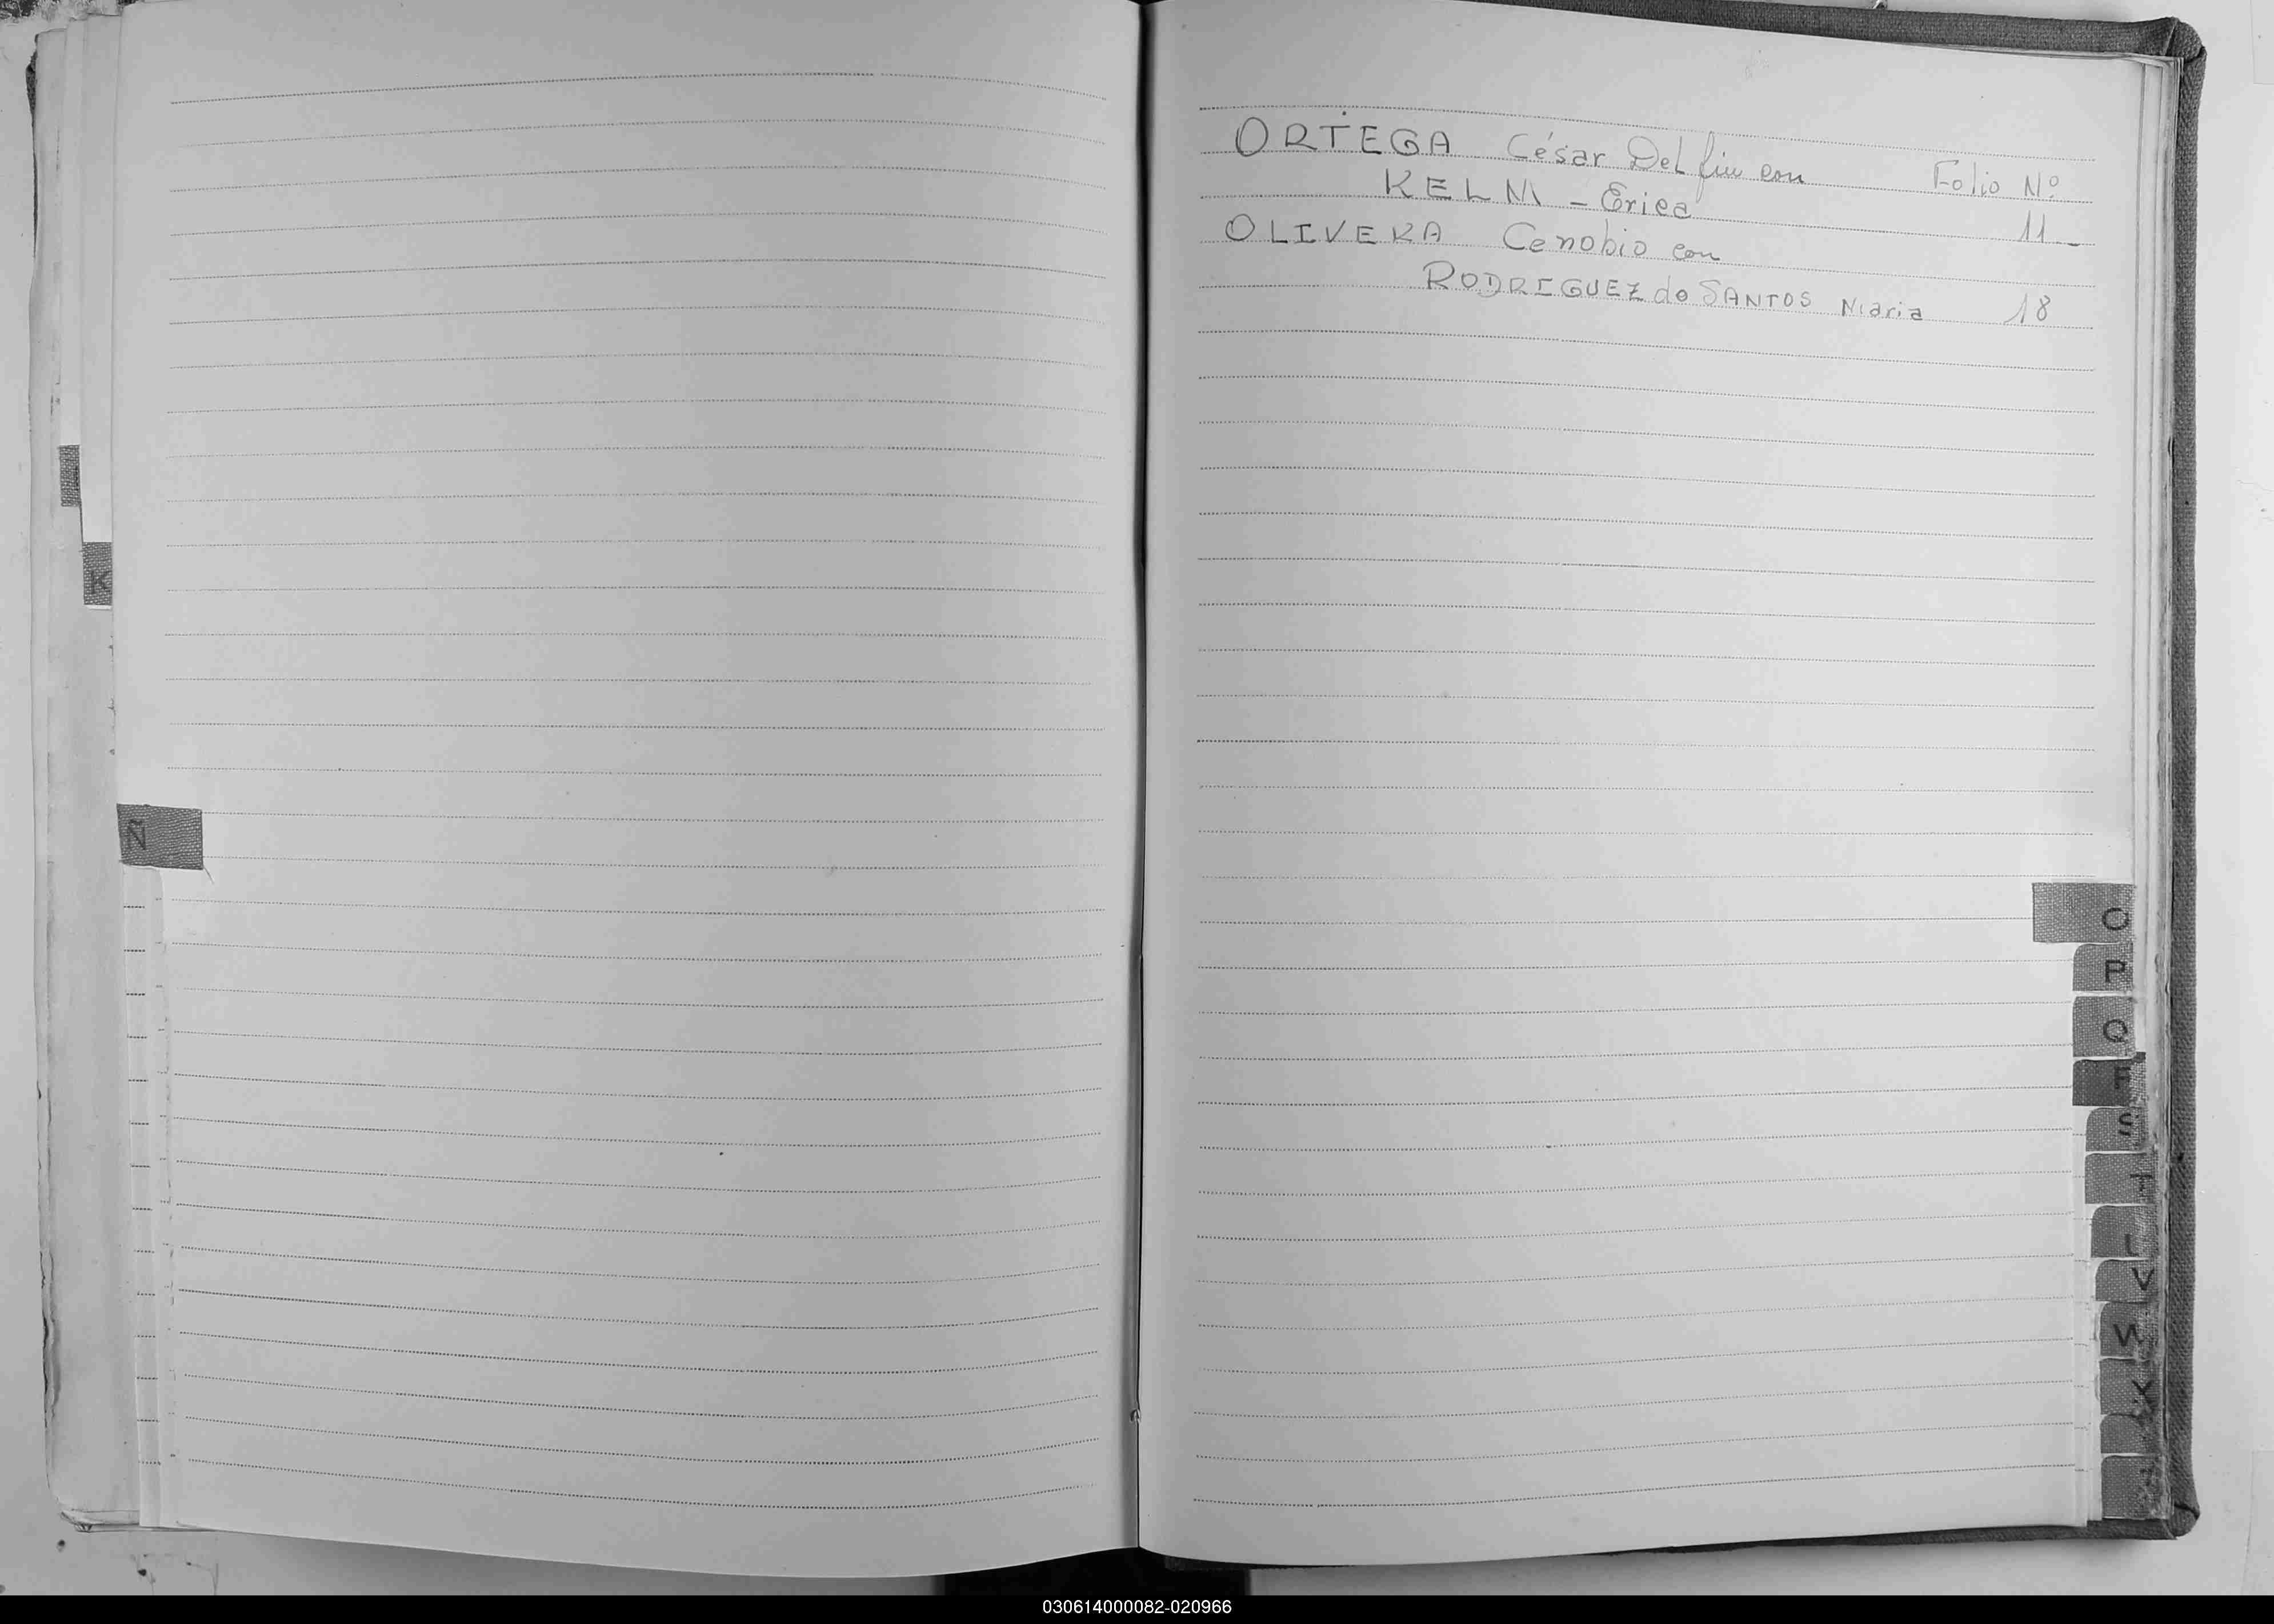 ORTEGA César Delfin con Folio Nº
KELM - Erica 11-
OLIVERA Cenobio con
RODRIGUEZ do SANTOS Maria 18
K
Ñ
O
P
Q
S
V
W
X
030614000082-020966